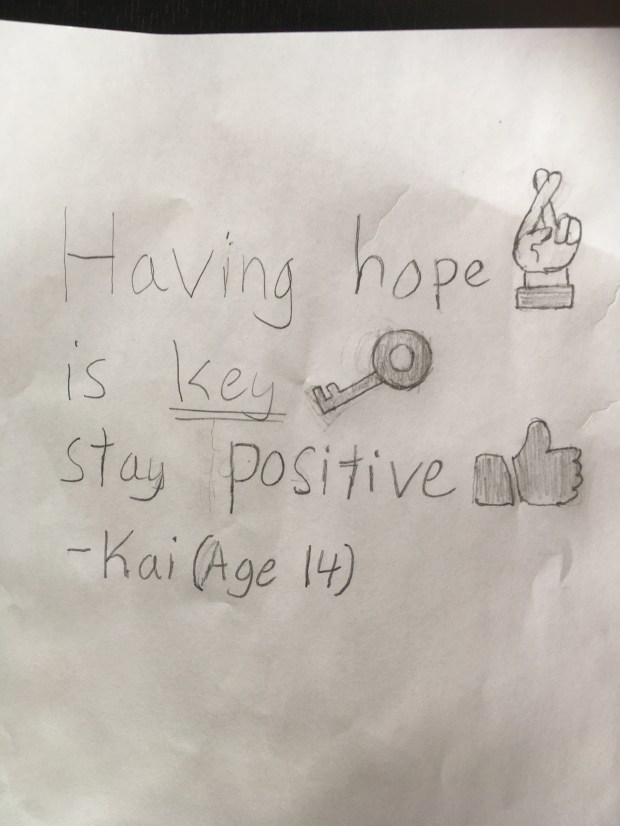 Having hope
is key
stay positive
-Kai (Age 14)